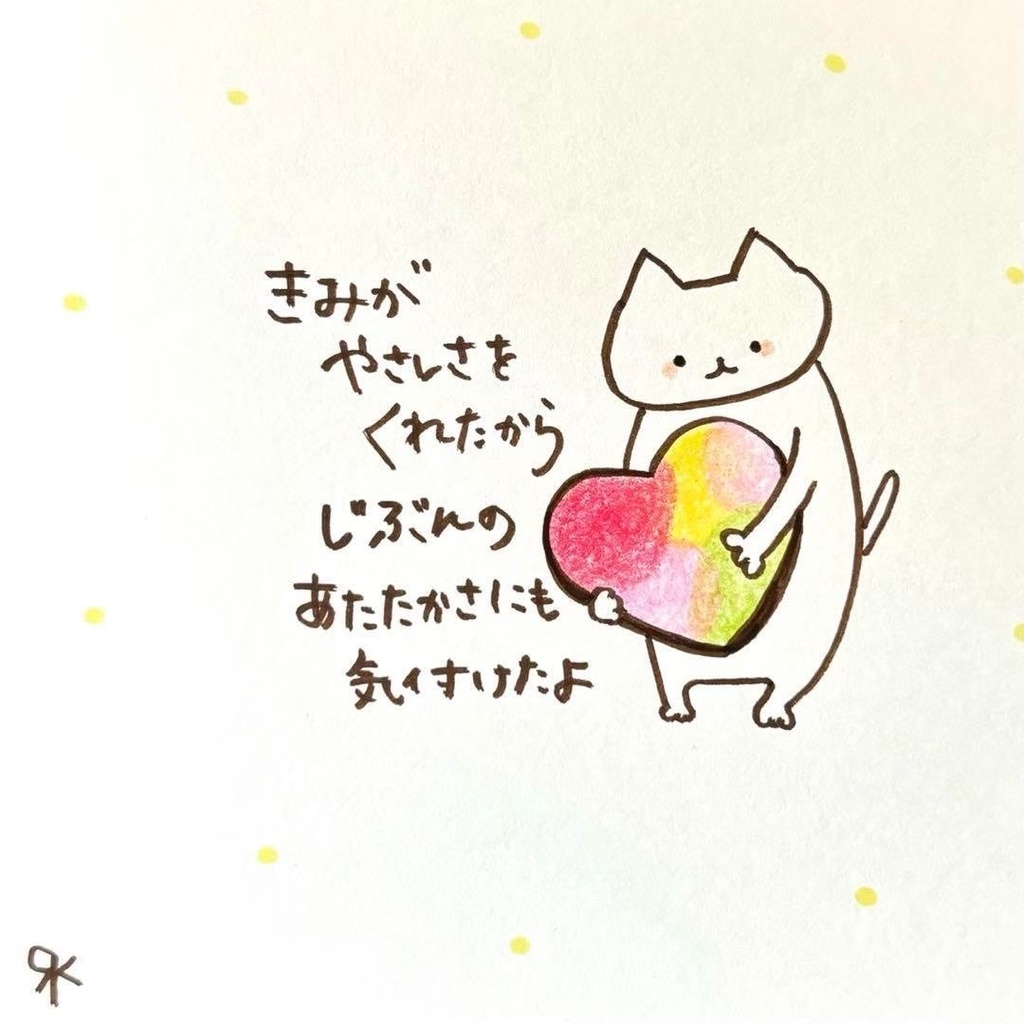 きみが
やさしさを
くれたから
じぶんの
あたたかさにも
気付けたよ